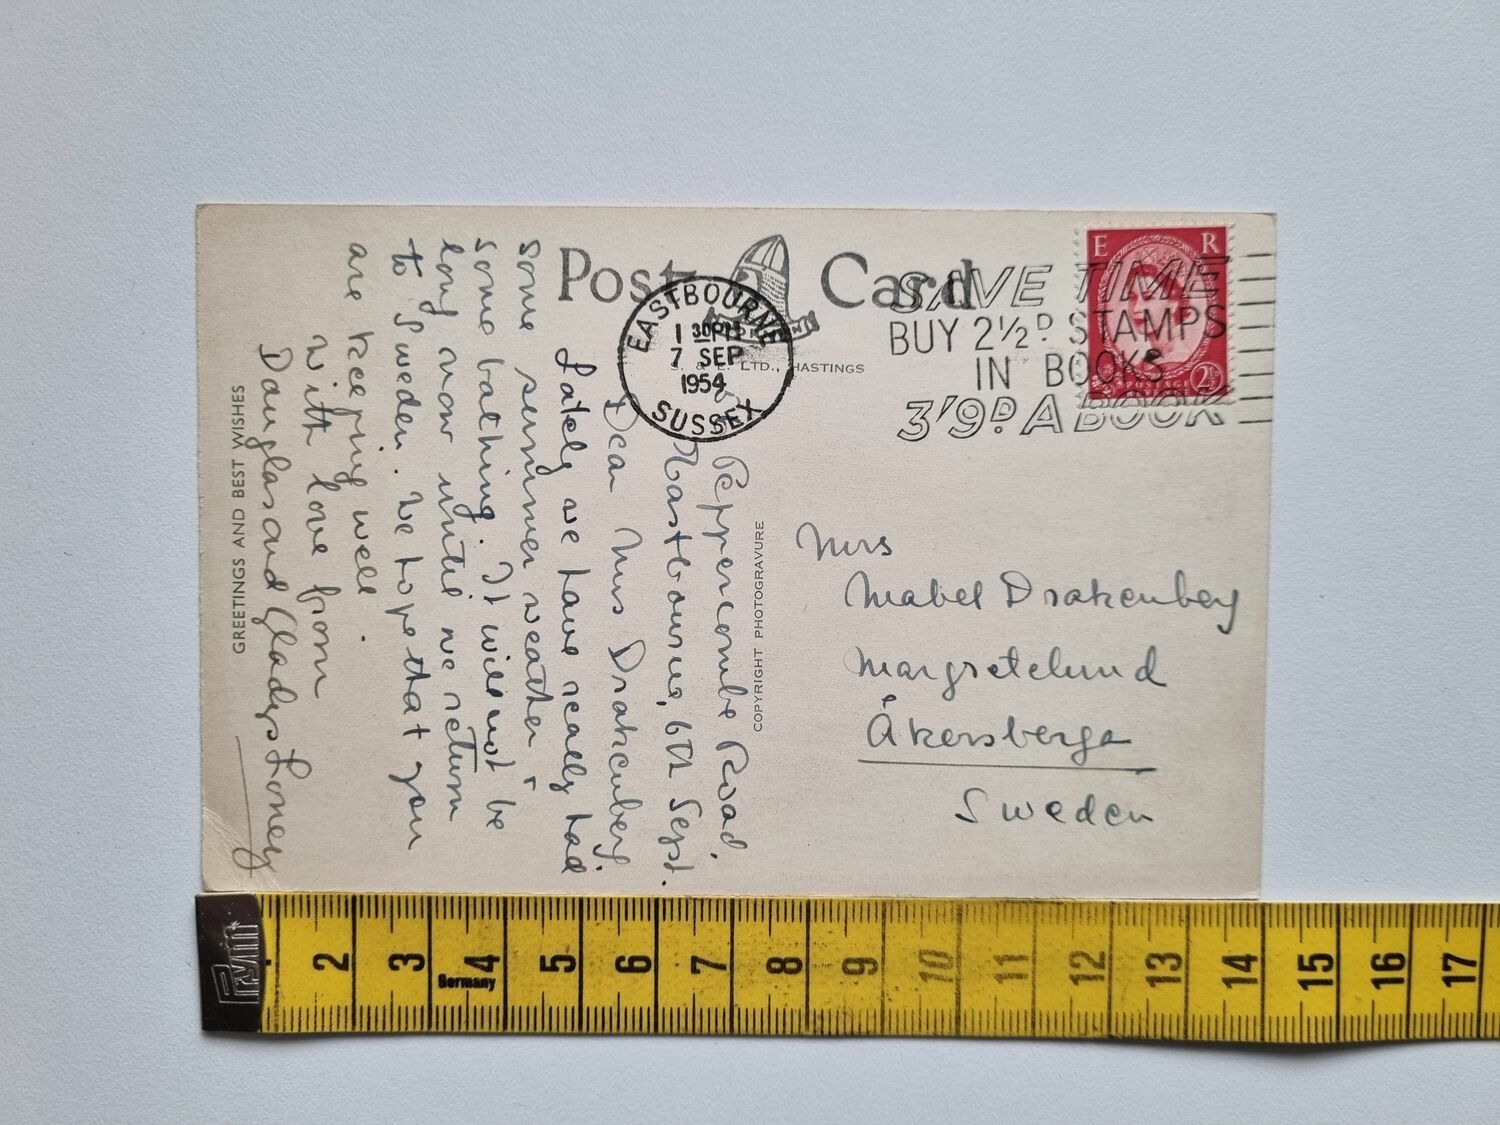 Post Card
S. & E. LTD., HASTINGS
EASTBOURNE
1 30PM
7 SEP
1954
SUSSEX
SAVE TIME
BUY 2½D STAMPS
IN BOOKS
3'9D A BOOK
E R
POSTAGE
2½D
Peppercombe Road,
Eastbourne, 6th Sept.
Dear Mrs Drakenberg
Lately we have really had
some summer weather &
some bathing. It will not be
long now until we return
to Sweden. We hope that you
are keeping well.
With love from
Douglas and Gladys Loney
GREETINGS AND BEST WISHES
COPYRIGHT PHOTOGRAVURE
Mrs
Mabel Drakenberg
Margretelund
Åkersberga
Sweden
Prym
Germany
2 3 4 5 6 7 8 9 10 11 12 13 14 15 16 17